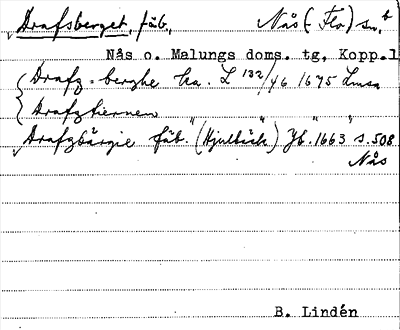 Drafsberget, fäb., Nås (Flo) sn,
Nås o. Malungs doms. tg, Kopp.l
Drafz-berghe ka. L 132/46 1675 Lmsa
Drafztiernen
Drafzbärgie fäb. (Hjulbäck) Jb. 1663 s. 508
Nås
B. Lindén